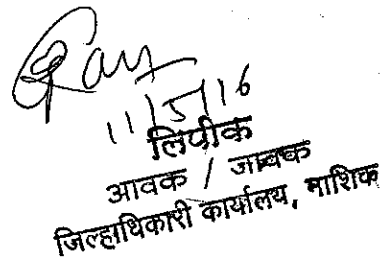 11/5/16
लिपीक
आवक / जावक
जिल्हाधिकारी कार्यालय, नाशिक